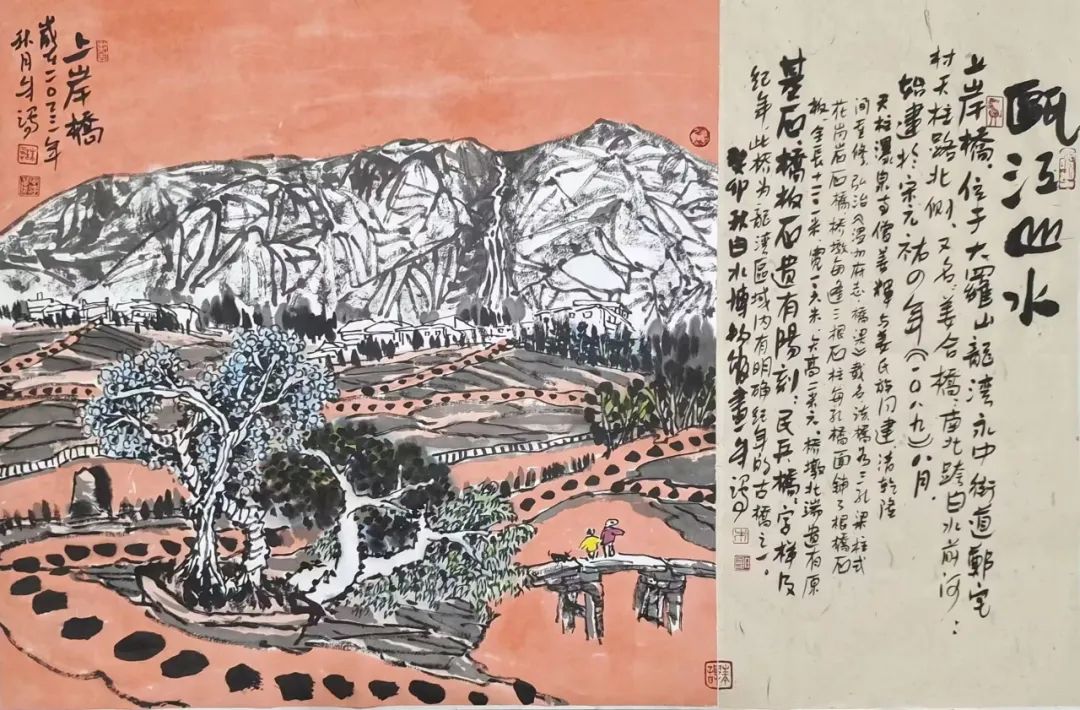 甌江山水
上岸橋,位于大羅山龍湾永中街道鄭宅
村天柱路北側,又名姜合橋,南北跨白水前河;
始建於宋元祐四年(一〇八九)八月,
天柱瀑泉寺僧善輝与姜氏族建清乾隆
间重修,弘治《温州府志橋梁》載名該橋为三孔梁柱式
花崗岩石橋,桥墩每座三根石柱每孔橋面鋪橋石
板,全長十二米,宽一六米,高二米,桥墩北端遗有原
基石,橋板石遗有陽刻,民兵橋,字样及
紀年,此桥为龍湾區域内有明确纪年的古橋之一。
癸卯秋白水博物館畫
上岸橋
歲在二〇二三年
秋月